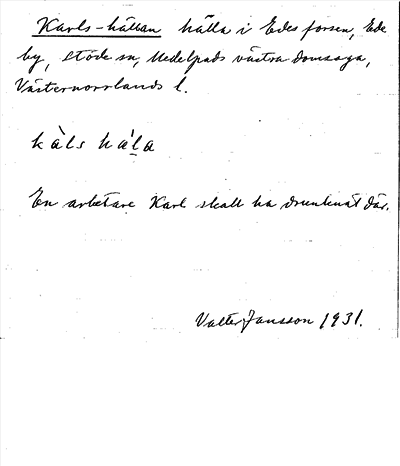 Karls-hällan hälla i Edesforsen, Ede
by, Stöde sn, Medelpads västra domsaga,
Västernorrlands l.
kàls hạ̈̀la
En arbetare Karl skall ha drunknat där.
Valter Jansson 1931.